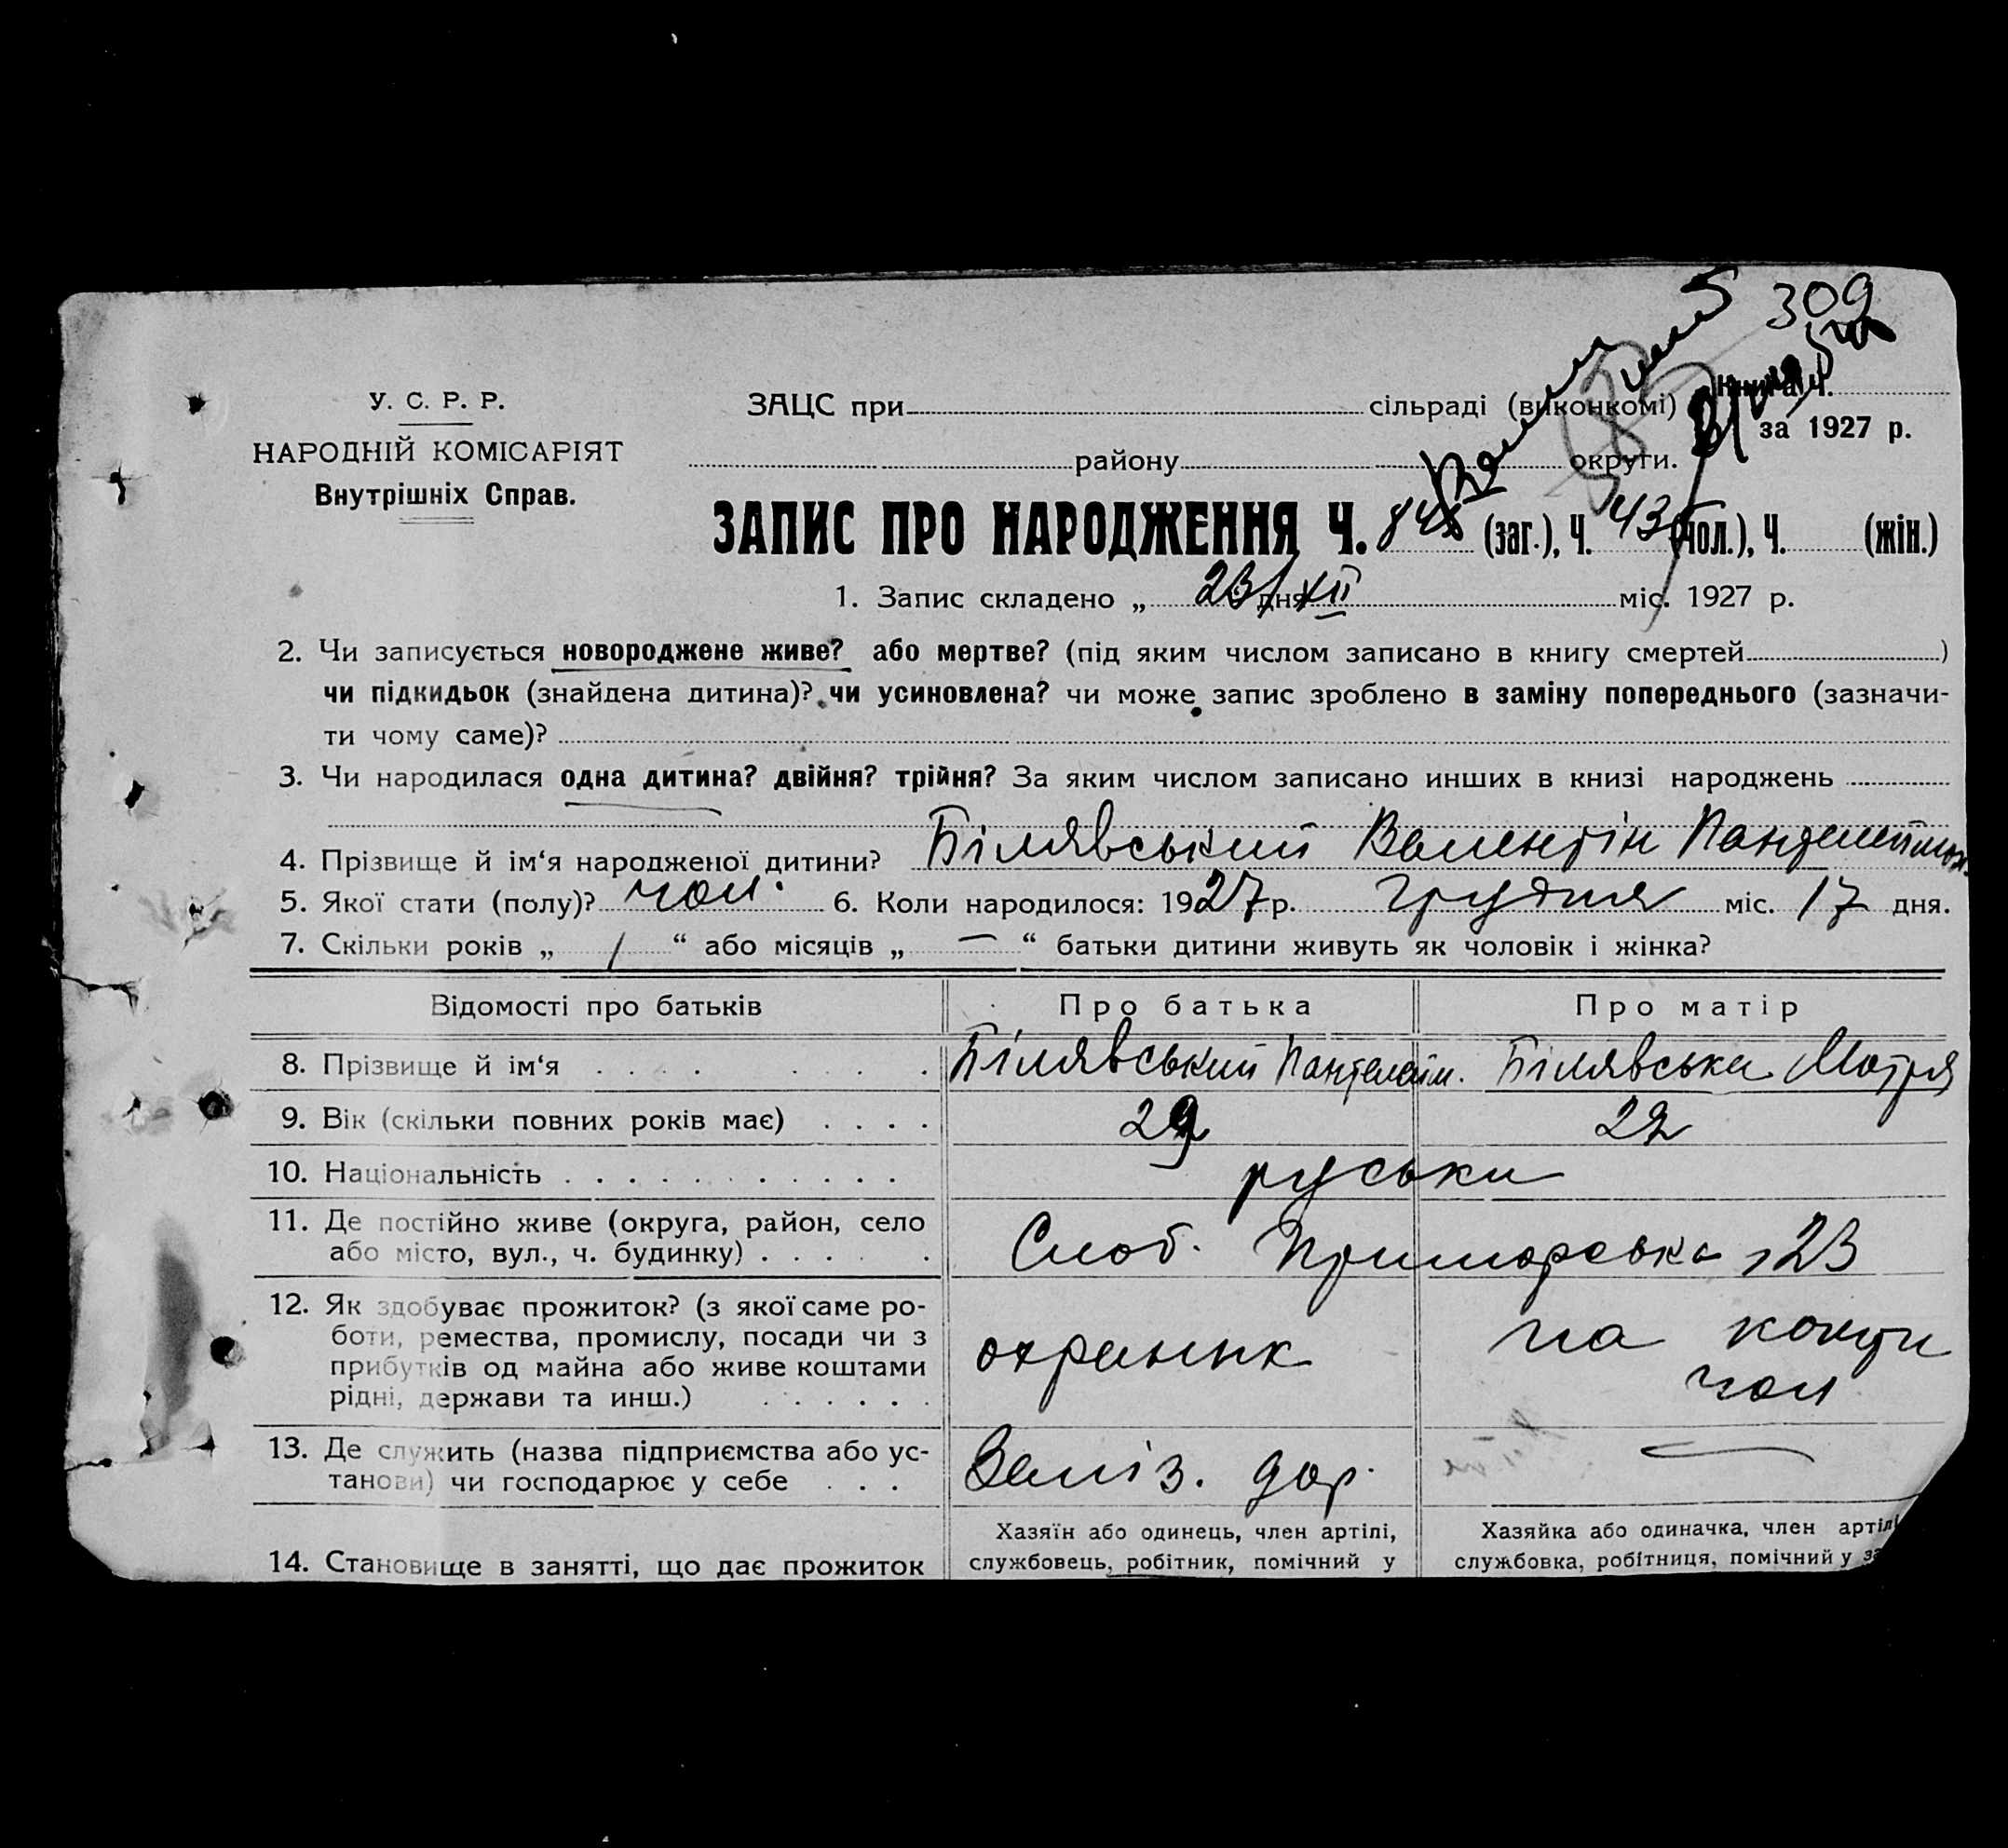 309
У. С. Р. Р.
НАРОДНІЙ КОМІСАРІЯТ
Внутрішніх Справ.
ЗАЦС при сільраді (виконкомі) Книга Ч.
за 1927 р.
району округи.
ЗАПИС ПРО НАРОДЖЕННЯ Ч. (заг.), Ч. 43 (чол.), Ч. (жін.)
1. Запис складено „ 23/ дня XII міс. 1927 р.
2. Чи записується новороджене живе? або мертве? (під яким числом записано в книгу смертей )
чи підкидьок (знайдена дитина)? чи усиновлена? чи може запис зроблено в заміну попереднього (зазначи-
ти чому саме)?
3. Чи народилася одна дитина? двійня? трійня? За яким числом записано инших в книзі народжень
4. Прізвище й ім‘я народженої дитини? Білявський Валентін
5. Якої стати (полу)? чол. 6. Коли народилося: 1927 р. грудня міс. 17 дня.
7. Скільки років „ 1 “ або місяців „ — “ батьки дитини живуть як чоловік і жінка?
Відомості про батьків Про батька Про матір
8. Прізвище й ім‘я Білявський Пантелейм. Білявська Мотря
9. Вік (скільки повних років має) 29 22
10. Національність руськи
11. Де постійно живе (округа, район, село
або місто, вул., ч. будинку) Слоб. Приморовка 123
12. Як здобуває прожиток? (з якої саме ро-
боти, ремества, промислу, посади чи з
прибутків од майна або живе коштами
рідні, держави та инш.) охранник на кошти
чол
13. Де служить (назва підприємства або ус-
танови) чи господарює у себе Заліз. дор. —
14. Становище в занятті, що дає прожиток
Хазяїн або одинець, член артілі,
службовець, робітник, помічний у
Хазяйка або одиначка, член артілі
службовка, робітниця, помічний у